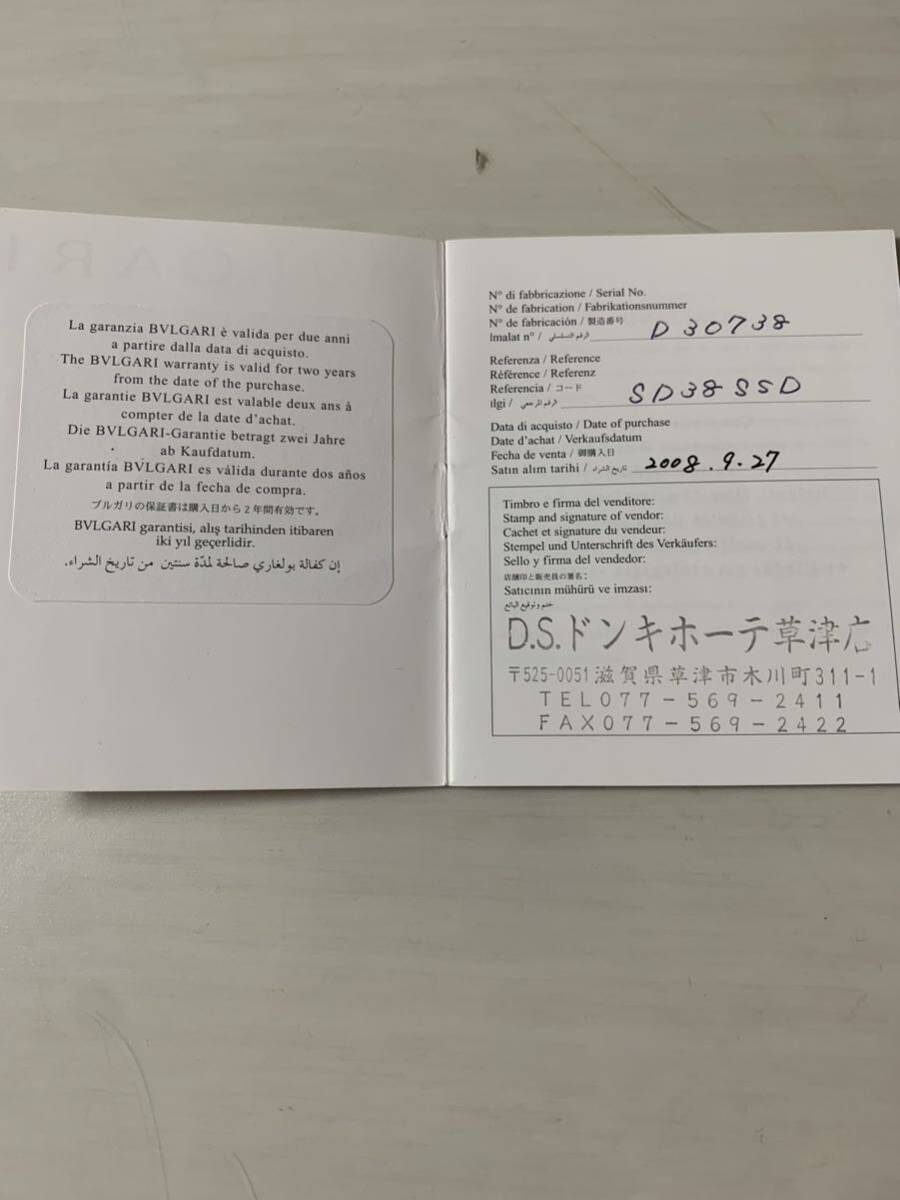 La garanzia BVLGARI è valida per due anni
a partire dalla data di acquisto.
The BVLGARI warranty is valid for two years
from the date of the purchase.
La garantie BVLGARI est valable deux ans à
compter de la date d'achat.
Die BVLGARI-Garantie betragt zwei Jahre
ab Kaufdatum.
La garantía BVLGARI es válida durante dos años
a partir de la fecha de compra.
ブルガリの保証書は購入日から2年間有効です。
BVLGARI garantisi, alış tarihinden itibaren
iki yıl geçerlidir.
إن كفالة بولغاري صالحة لمدّة سنتين من تاريخ الشراء.
N° di fabbricazione / Serial No.
N° de fabrication / Fabrikationsnummer
N° de fabricación / 製造番号
Imalat n° / الرقم التسلسلي D30738
Referenza / Reference
Référence / Referenz
Referencia / コード
Ilgi / الرقم المرجعي SD38SSD
Data di acquisto / Date of purchase
Date d'achat / Verkaufsdatum
Fecha de venta / 御購入日
Satın alım tarihi / تاريخ الشراء 2008.9.27
Timbro e firma del venditore:
Stamp and signature of vendor:
Cachet et signature du vendeur:
Stempel und Unterschrift des Verkäufers:
Sello y firma del vendedor:
店舗印と販売員の署名:
Satıcının mühürü ve imzası:
ختم وتوقيع البائع
D.S.ドンキホーテ草津店
〒525-0051 滋賀県草津市木川町311-1
TEL077-569-2411
FAX077-569-2422